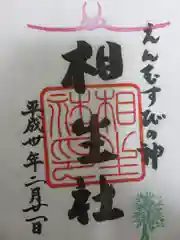 えんむすびの神
相生社
平成卅年二月廿一日